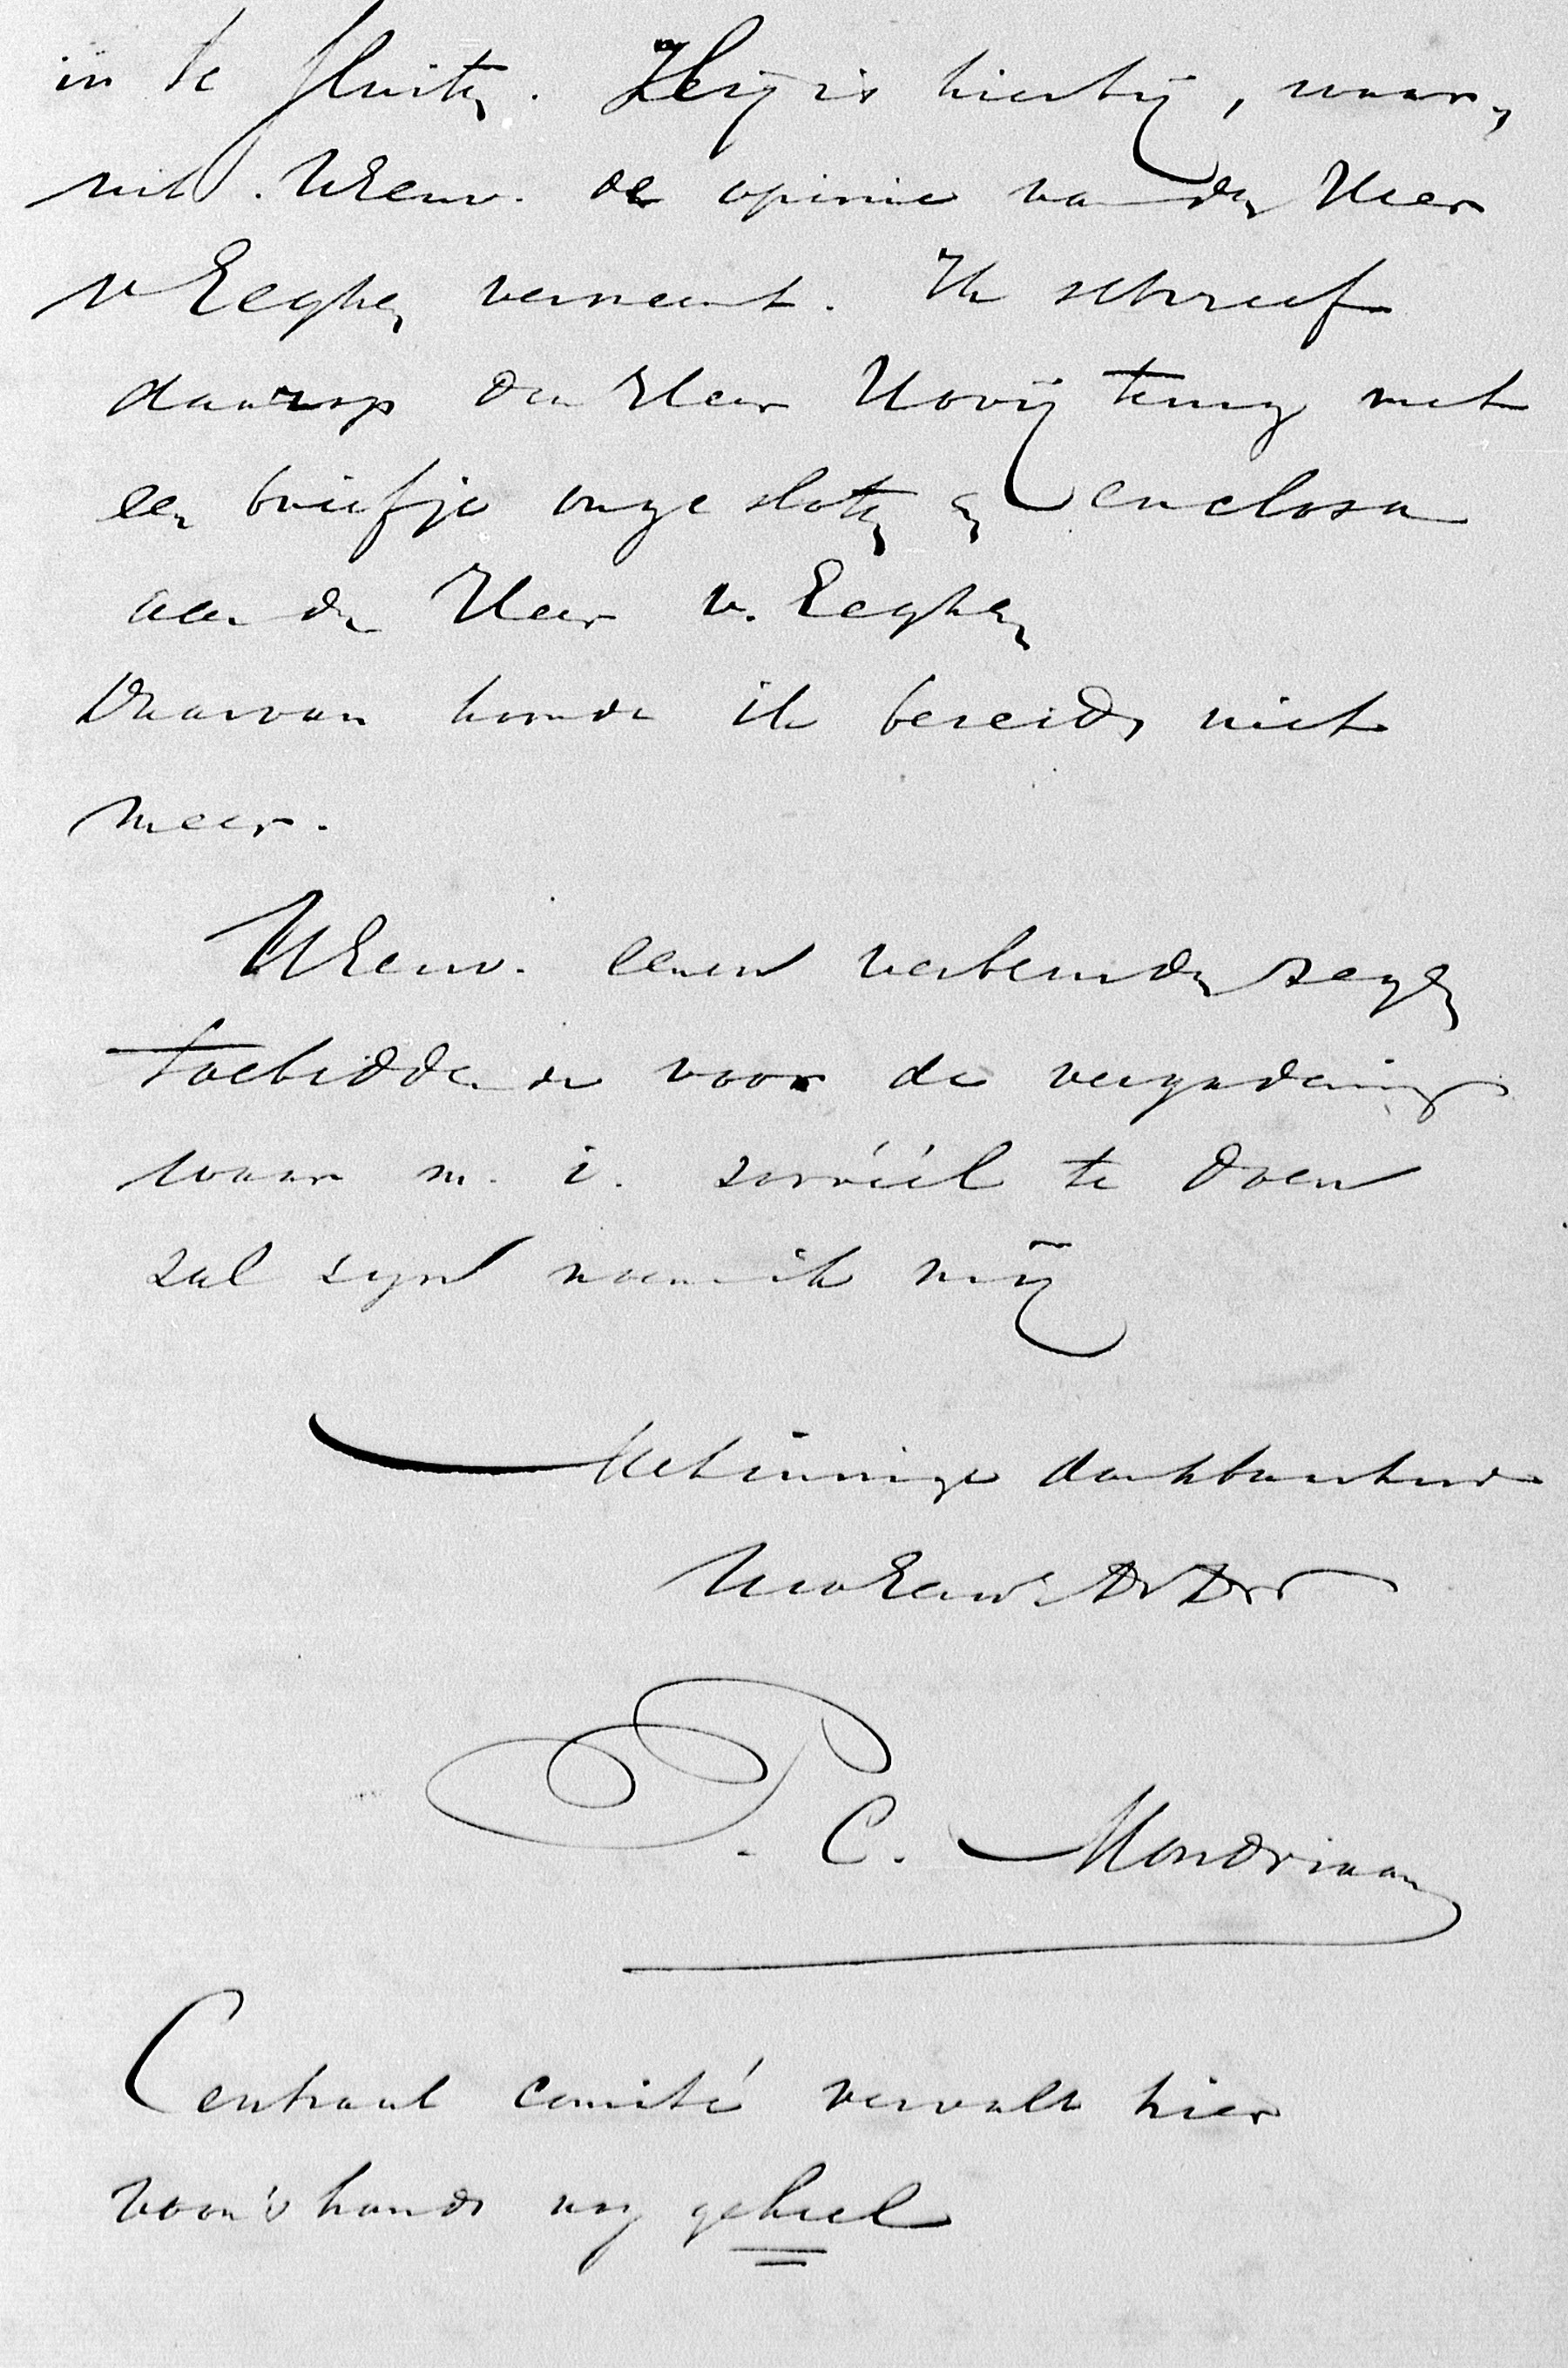 in te sluiten. Zij is hierbij, waar-
uit UEerw. de opinie van den Heer
v Eeghen verneemt. Ik schreef
daarop den Heer Hovij terug met
een briefje ongesloten en enclosu
aan den Heer v. Eeghen
Daarvan hoorde ik bereids niet
meer.
UEerw. eenen verbeurden zegen
toebiddende voor de vergadering
waar m. i. zoovéél te doen
zal zyn noem ik mij
Met innige dankbaarheid
UwEerw. Dv Dr
P. C. Mondriaan
Centraal comité vervalt hier
voor's hands nog geheel